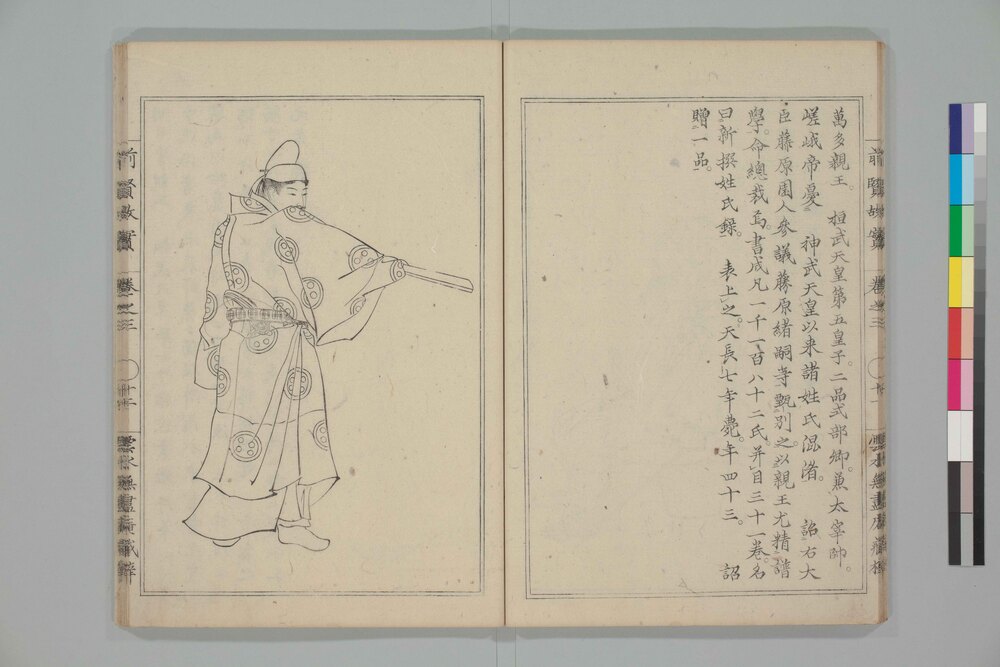 萬多親王。桓武天皇第五皇子。二品式部卿。兼太宰帥。
嵯峨帝憂 神武天皇以来諸姓氏混淆。 詔右大
臣藤原園人參議藤原緒嗣等甄別之。以親王尤精譜
學。命總裁焉。書成凡一千一百八十二氏并目三十一卷。名
曰新撰姓氏錄。 表上之。天長七年薨。年四十三。 詔
贈一品。
前賢故實 卷之三
前賢故實 卷之三